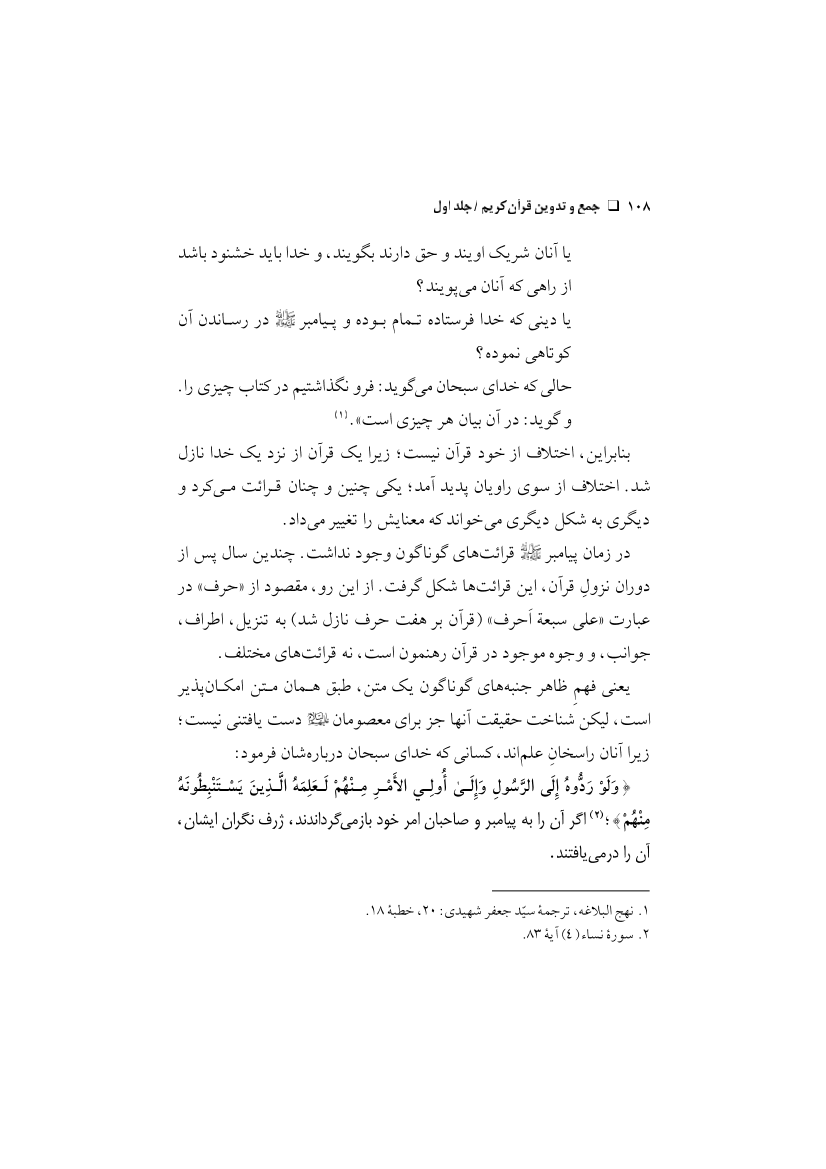 ۱۰۸ ❑ جمع و تدوین قرآن کریم / جلد اول
یا آنان شریک اویند و حق دارند بگویند، و خدا باید خشنود باشد
از راهی که آنان می‌پویند؟
یا دینی که خدا فرستاده تـمام بـوده و پـیامبر ﷺ در رسـاندن آن
کوتاهی نموده؟
حالی که خدای سبحان می‌گوید: فرو نگذاشتیم در کتاب چیزی را.
و گوید: در آن بیان هر چیزی است».(۱)
بنابراین، اختلاف از خود قرآن نیست؛ زیرا یک قرآن از نزد یک خدا نازل
شد. اختلاف از سوی راویان پدید آمد؛ یکی چنین و چنان قـرائت مـی‌کرد و
دیگری به شکل دیگری می‌خواند که معنایش را تغییر می‌داد.
در زمان پیامبر ﷺ قرائت‌های گوناگون وجود نداشت. چندین سال پس از
دوران نزولِ قرآن، این قرائت‌ها شکل گرفت. از این رو، مقصود از «حرف» در
عبارت «علی سبعة اَحرف» (قرآن بر هفت حرف نازل شد) به تنزیل، اطراف،
جوانب، و وجوه موجود در قرآن رهنمون است، نه قرائت‌های مختلف.
یعنی فهمِ ظاهر جنبه‌های گوناگون یک متن، طبق هـمان مـتن امکـان‌پذیر
است، لیکن شناخت حقیقت آنها جز برای معصومان دست یافتنی نیست؛
زیرا آنان راسخانِ علم‌اند، کسانی که خدای سبحان درباره‌شان فرمود:
﴿وَلَوْ رَدُّوهُ إِلَى الرَّسُولِ وَإِلَـىٰ أُولِـي الأَمْـرِ مِـنْهُمْ لَـعَلِمَهُ الَّـذِينَ يَسْـتَنْبِطُونَهُ
مِنْهُمْ﴾؛(۲) اگر آن را به پیامبر و صاحبان امر خود بازمی‌گرداندند، ژرف نگران ایشان،
آن را درمی‌یافتند.
۱. نهج البلاغه، ترجمهٔ سیّد جعفر شهیدی: ۲۰، خطبهٔ ۱۸.
۲. سورهٔ نساء (٤) آیهٔ ۸۳.